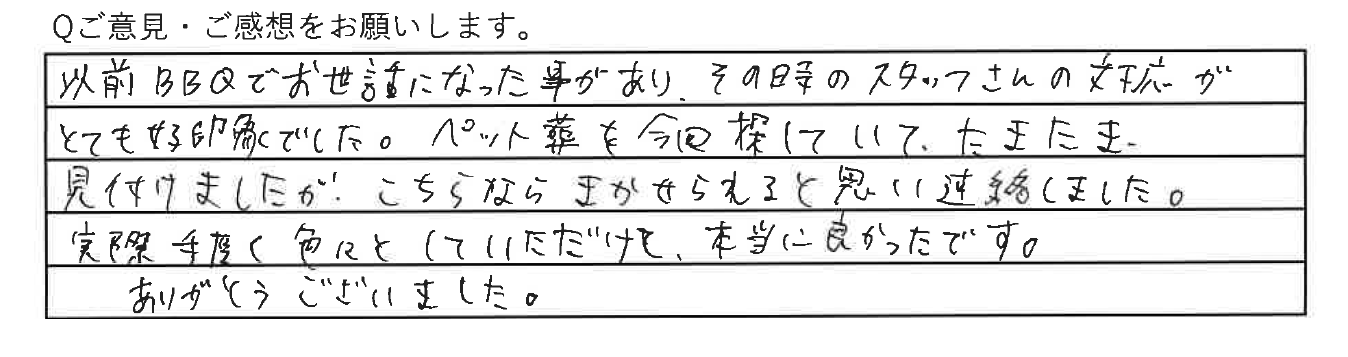 Qご意見・ご感想をお願いします。
以前BBQでお世話になった事があり、その時のスタッフさんの対応が
とても好印象でした。ペット葬を今回探していて、たまたま、
見付けましたが、こちらなら まかせられると思い連絡しました。
実際 手厚く色々としていただけて、本当に良かったです。
ありがとうございました。